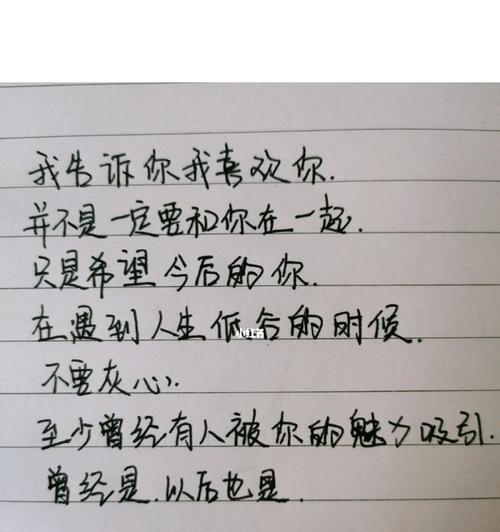 我告诉你我喜欢你.
并不是一定要和你在一起.
只是希望今后的你.
在遇到人生低谷的时候.
小红书
不要灰心.
至少曾经有人被你的魅力吸引.
曾经是.以后也是.